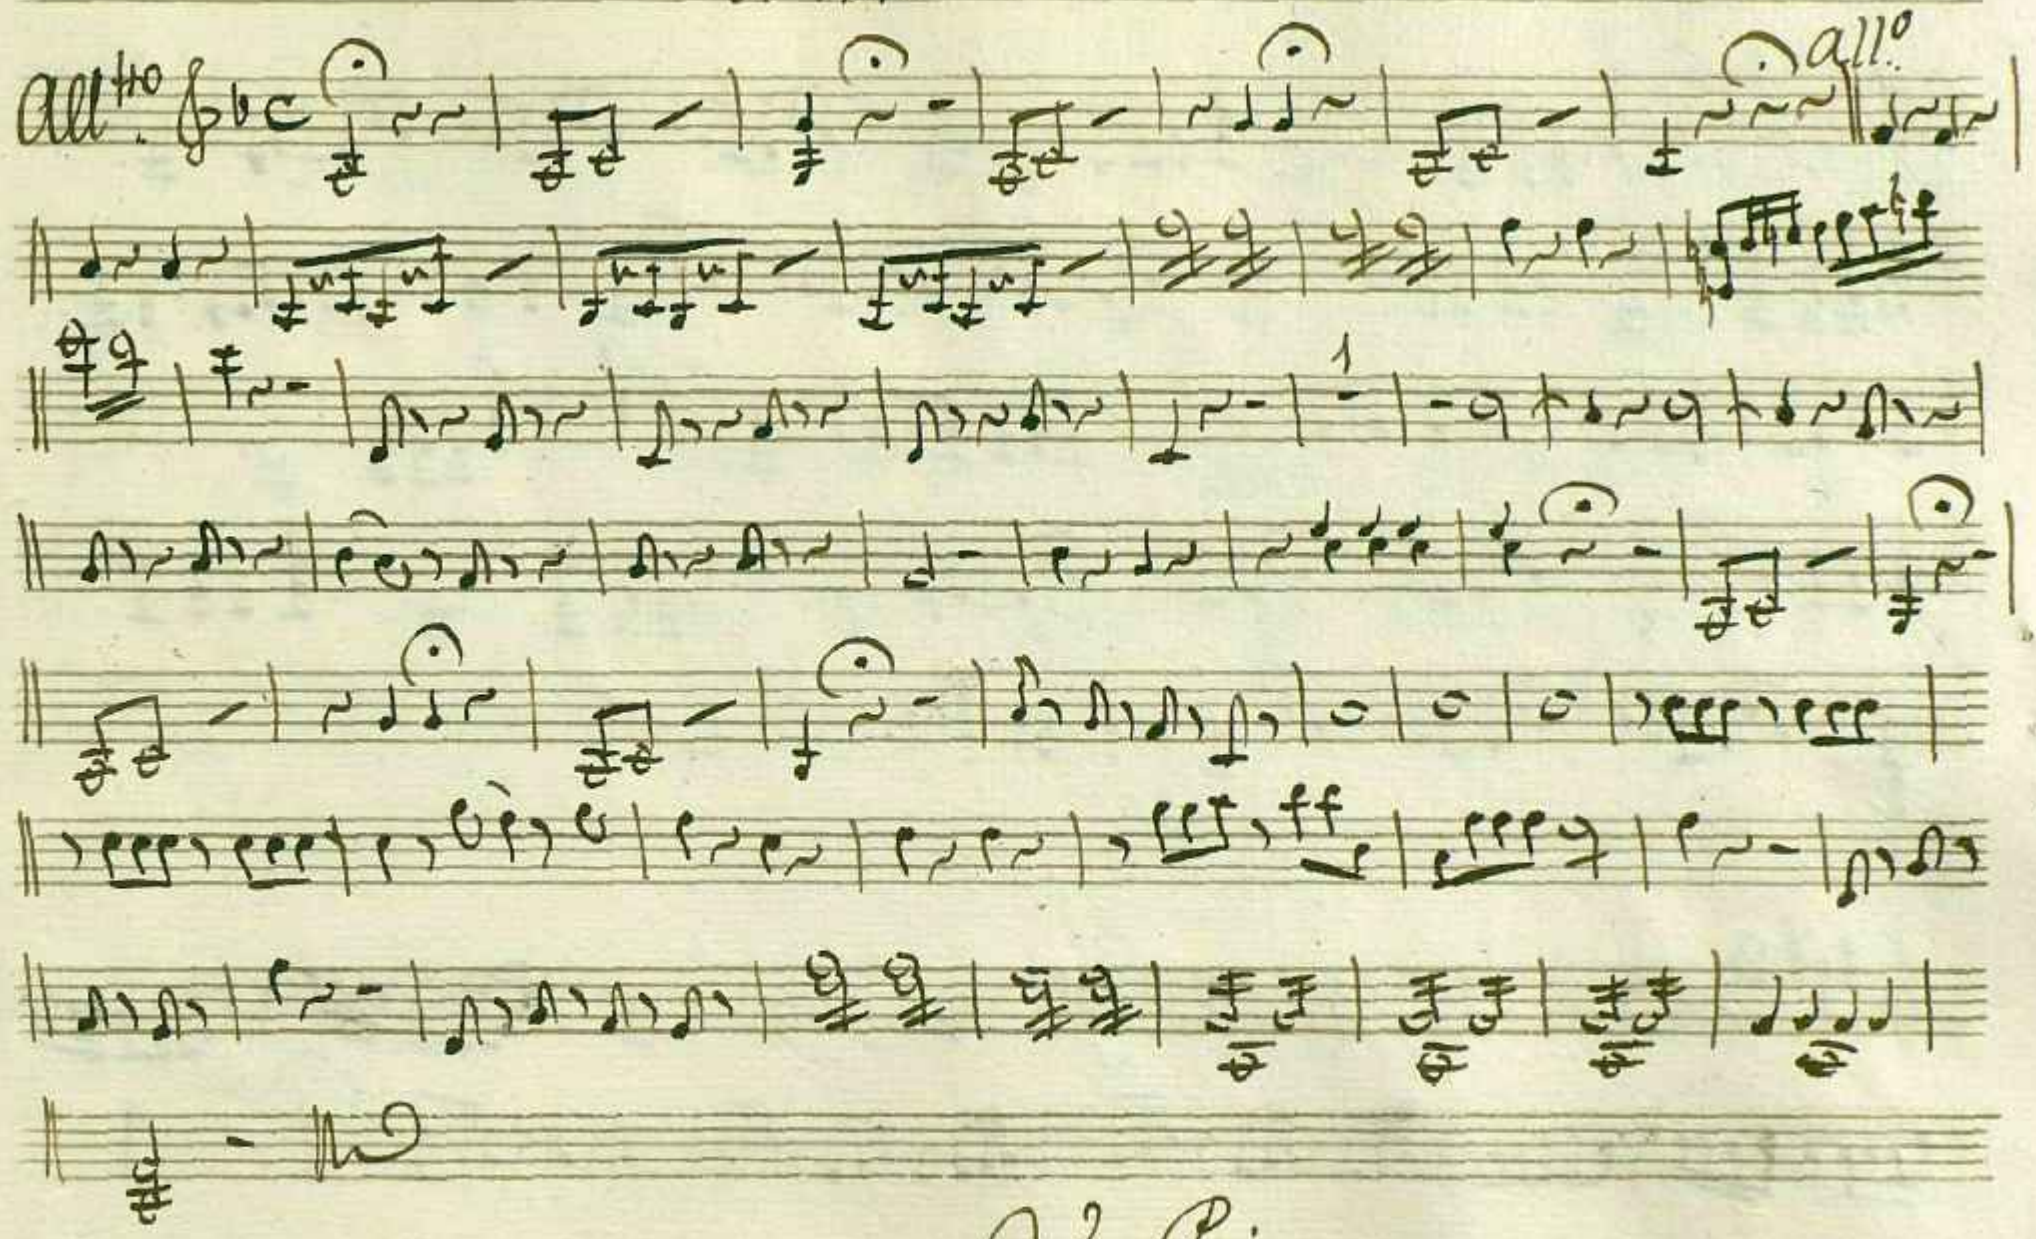 All.tto all.o
1